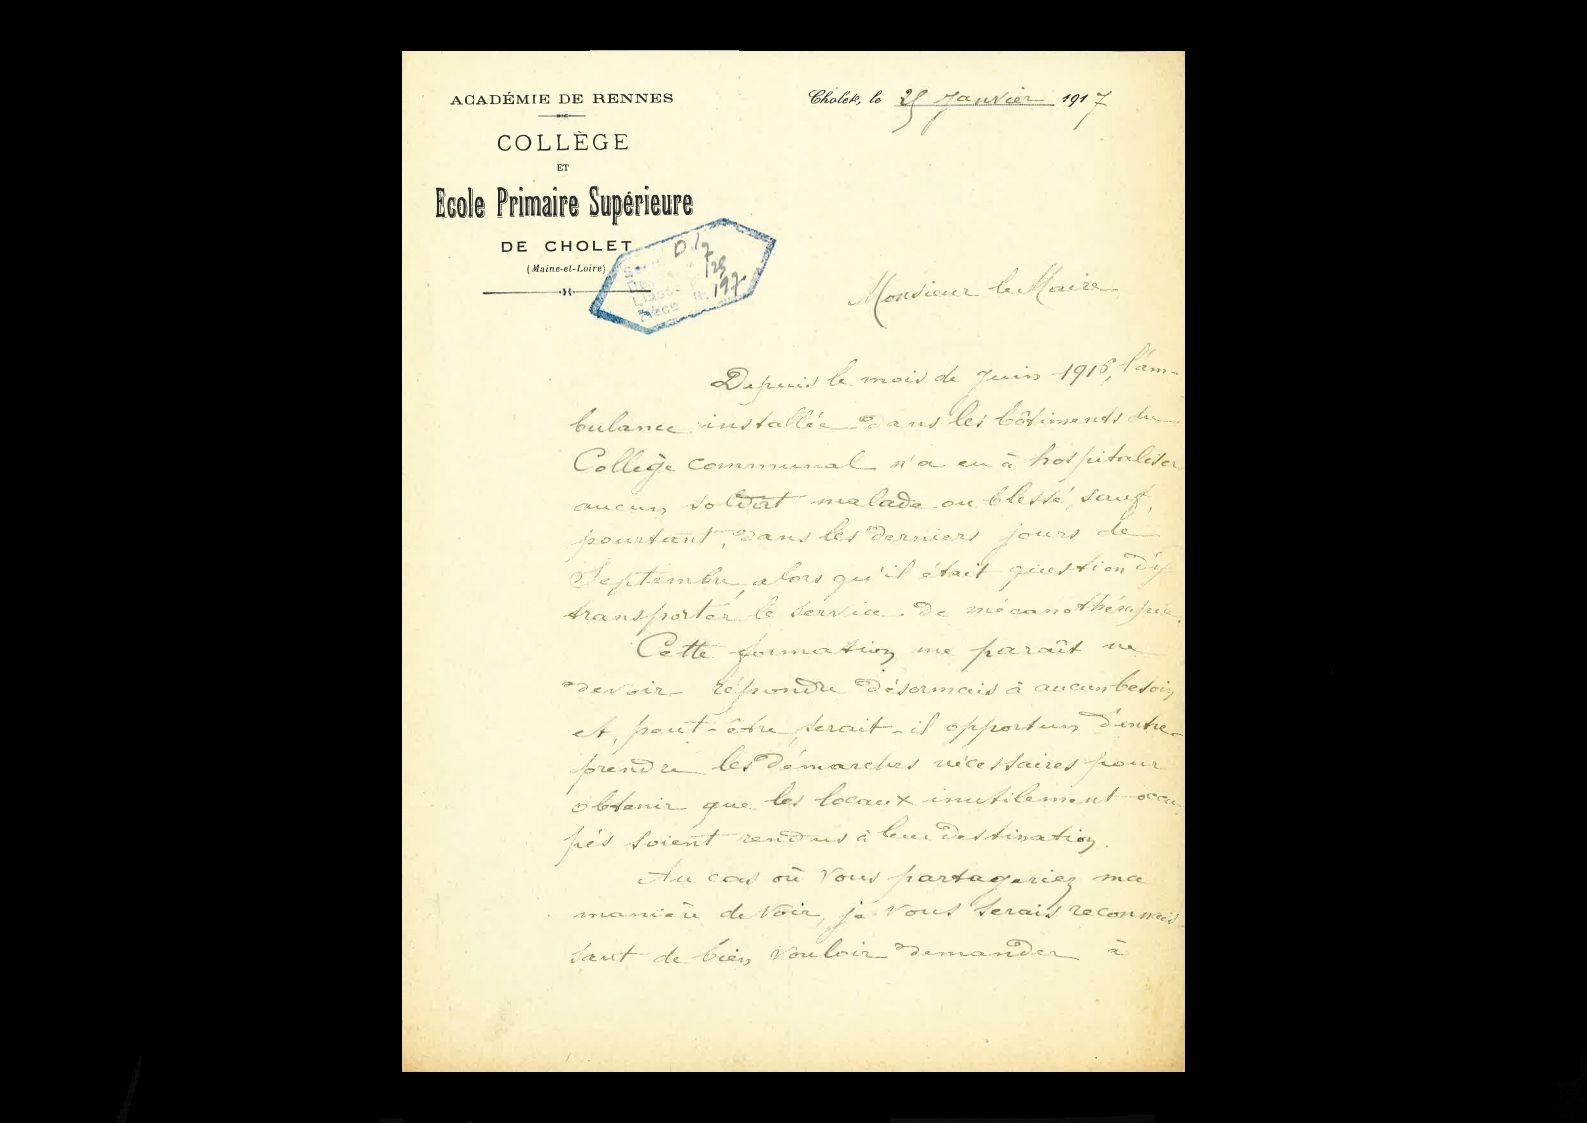 ACADÉMIE DE RENNES
COLLÈGE
ET
Ecole Primaire Supérieure
DE CHOLET
(Maine-et-Loire)
Cholet, le 25 Janvier 1917
D.17
125
197
Monsieur le Maire
Depuis le mois de Juin 1916, l'am-
bulance installée dans les bâtiments du
Collège communal n'a eu à hospitaliser
aucun soldat malade ou blessé, sauf,
pourtant, dans les derniers jours de
Septembre, alors qu'il était question d'y
transporter le service de mécanothérapie.
Cette formation me paraît ne
devoir répondre désormais à aucun besoin
et, peut-être, serait-il opportun d'entre-
prendre les démarches nécessaires pour
obtenir que les locaux inutilement occu-
pés soient rendus à leur destination.
Au cas où vous partageriez ma
manière de voir, je vous serais reconnais-
sant de bien vouloir demander à